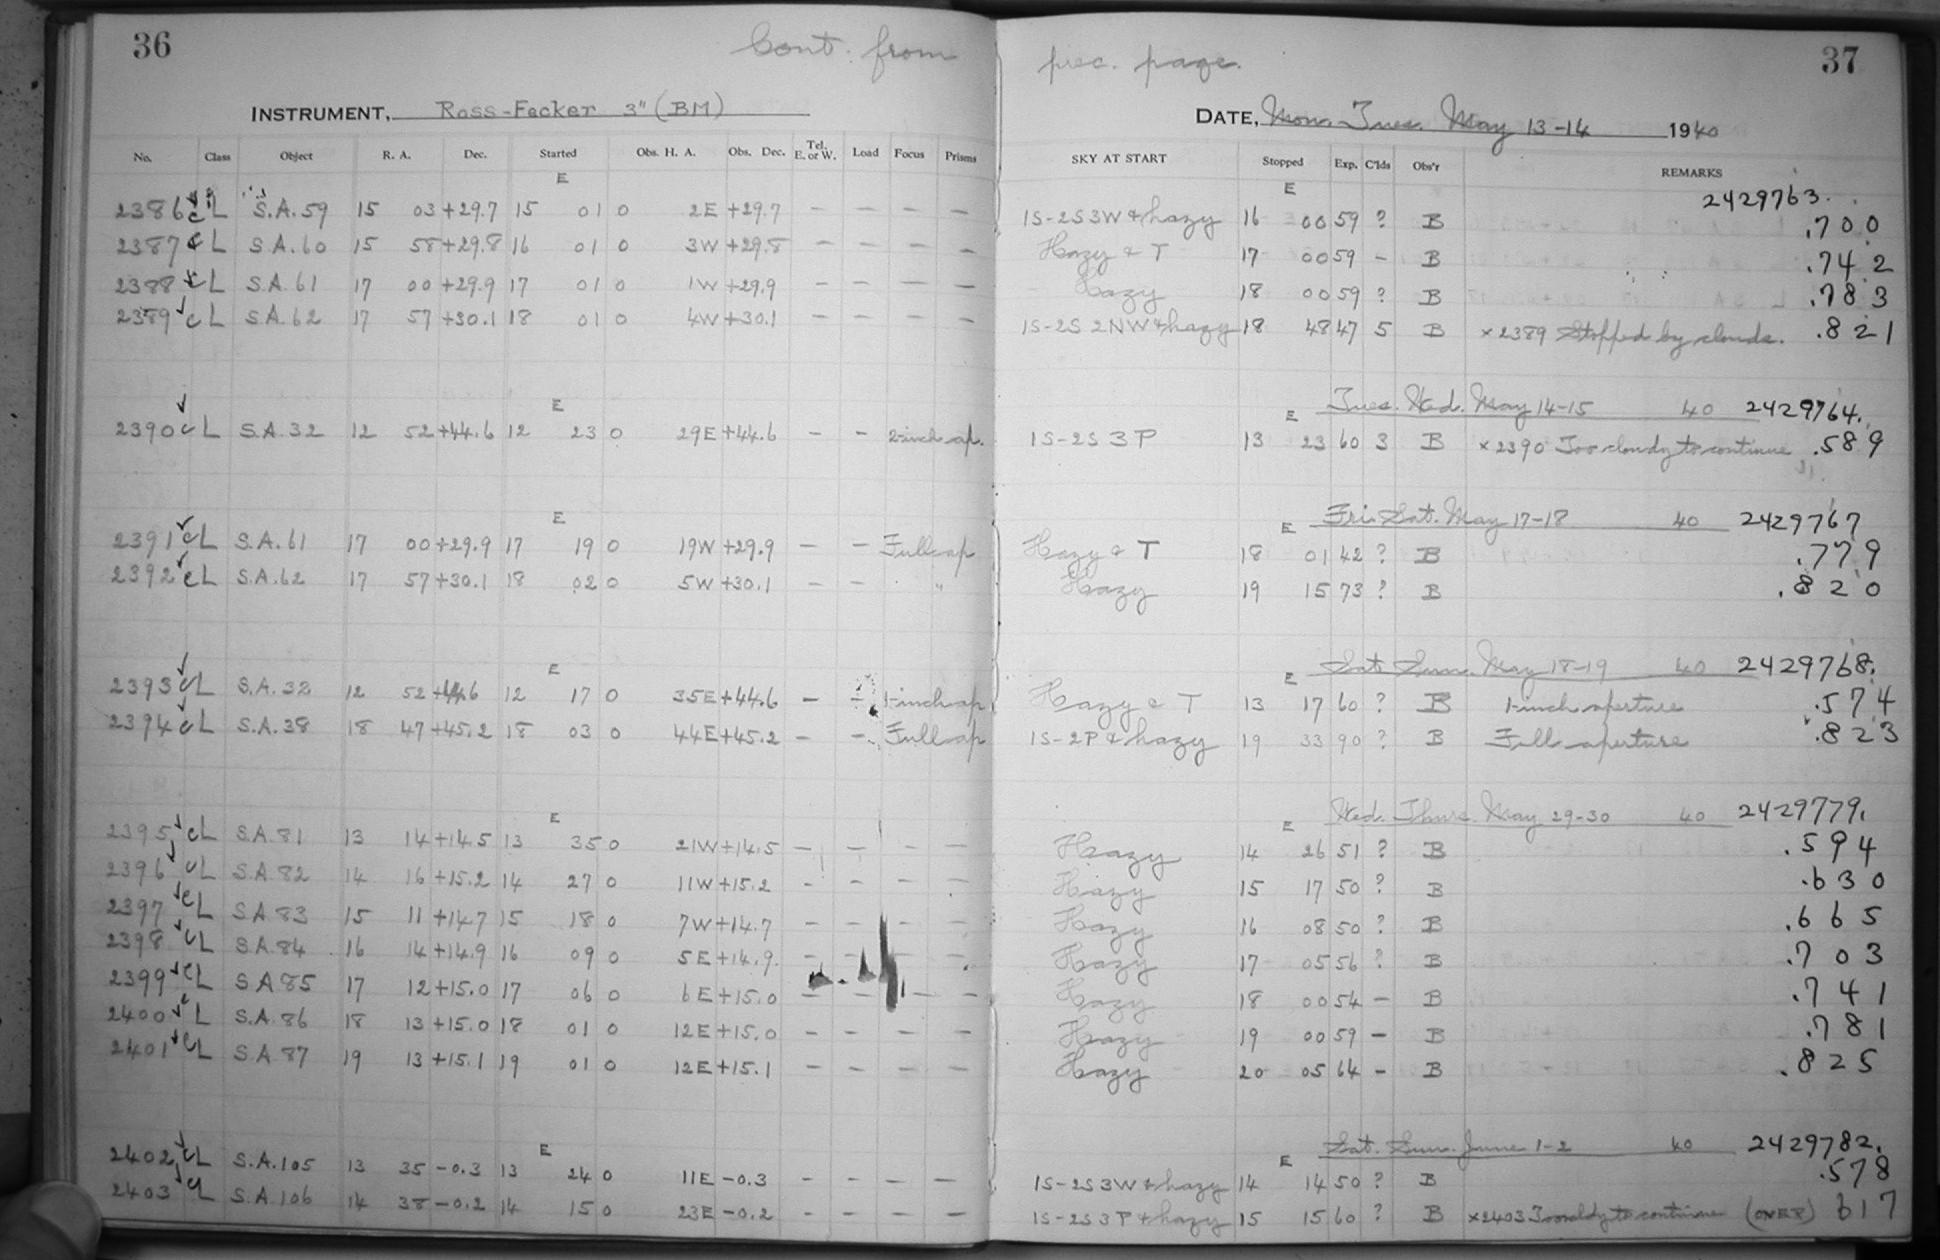 36
Cont. from prec. page.
37
INSTRUMENT, Ross-Fecker 3" (BM)
DATE, Mon. Tues. May 13-14 1940
No. Class Object R. A. Dec. Started Obs. H. A. Obs. Dec. Tel. E. or W. Load Focus Prisms SKY AT START Stopped Exp. C'lds Obs'r REMARKS
E E 2429763.
2386 cL S.A.59 15 03 +29.7 15 01 0 2E +29.7 – – – – 1S-2S3W & hazy 16 00 59 ? B .700
2387 cL S.A.60 15 58 +29.8 16 01 0 3W +29.8 – – – – Hazy & T 17 00 59 – B .742
2388 cL S.A.61 17 00 +29.9 17 01 0 1W +29.9 – – – – Hazy 18 00 59 ? B .783
2389 cL S.A.62 17 57 +30.1 18 01 0 4W +30.1 – – – – 1S-2S 2NW & hazy 18 48 47 5 B × 2389 Stopped by clouds. .821
E E Tues. Wed. May 14-15 40 2429764.
2390 cL S.A.32 12 52 +44.6 12 23 0 29E +44.6 – – 2-inch ap. 1S-2S 3P 13 23 60 3 B × 2390 Too cloudy to continue .589
E E Fri. Sat. May 17-18 40 2429767
2391 cL S.A.61 17 00 +29.9 17 19 0 19W +29.9 – – Full ap Hazy & T 18 01 42 ? B .779
2392 cL S.A.62 17 57 +30.1 18 02 0 5W +30.1 – – " Hazy 19 15 73 ? B .820
E E Sat. Sun. May 18-19 40 2429768.
2393 cL S.A.32 12 52 +44.6 12 17 0 35E +44.6 – – 1-inch ap Hazy & T 13 17 60 ? B 1-inch aperture .574
2394 cL S.A.38 18 47 +45.2 18 03 0 44E +45.2 – – Full ap 1S-2P & hazy 19 33 90 ? B Full aperture .823
E E Wed. Thurs. May 29-30 40 2429779.
2395 cL S.A.81 13 14 +14.5 13 35 0 21W +14.5 – – – – Hazy 14 26 51 ? B .594
2396 cL S.A.82 14 16 +15.2 14 27 0 11W +15.2 – – – – Hazy 15 17 50 ? B .630
2397 cL S.A.83 15 11 +14.7 15 18 0 7W +14.7 – – – – Hazy 16 08 50 ? B .665
2398 cL S.A.84 16 14 +14.9 16 09 0 5E +14.9 – – – – Hazy 17 05 56 ? B .703
2399 cL S.A.85 17 12 +15.0 17 06 0 6E +15.0 – – – – Hazy 18 00 54 – B .741
2400 cL S.A.86 18 13 +15.0 18 01 0 12E +15.0 – – – – Hazy 19 00 59 – B .781
2401 cL S.A.87 19 13 +15.1 19 01 0 12E +15.1 – – – – Hazy 20 05 64 – B .825
E E Sat. Sun. June 1-2 40 2429782.
2402 cL S.A.105 13 35 -0.3 13 24 0 11E -0.3 – – – – 1S-2S3W & hazy 14 14 50 ? B .578
2403 cL S.A.106 14 38 -0.2 14 15 0 23E -0.2 – – – – 1S-2S3P & hazy 15 15 60 ? B × 2403 Too cldy to continue (OVER) 617